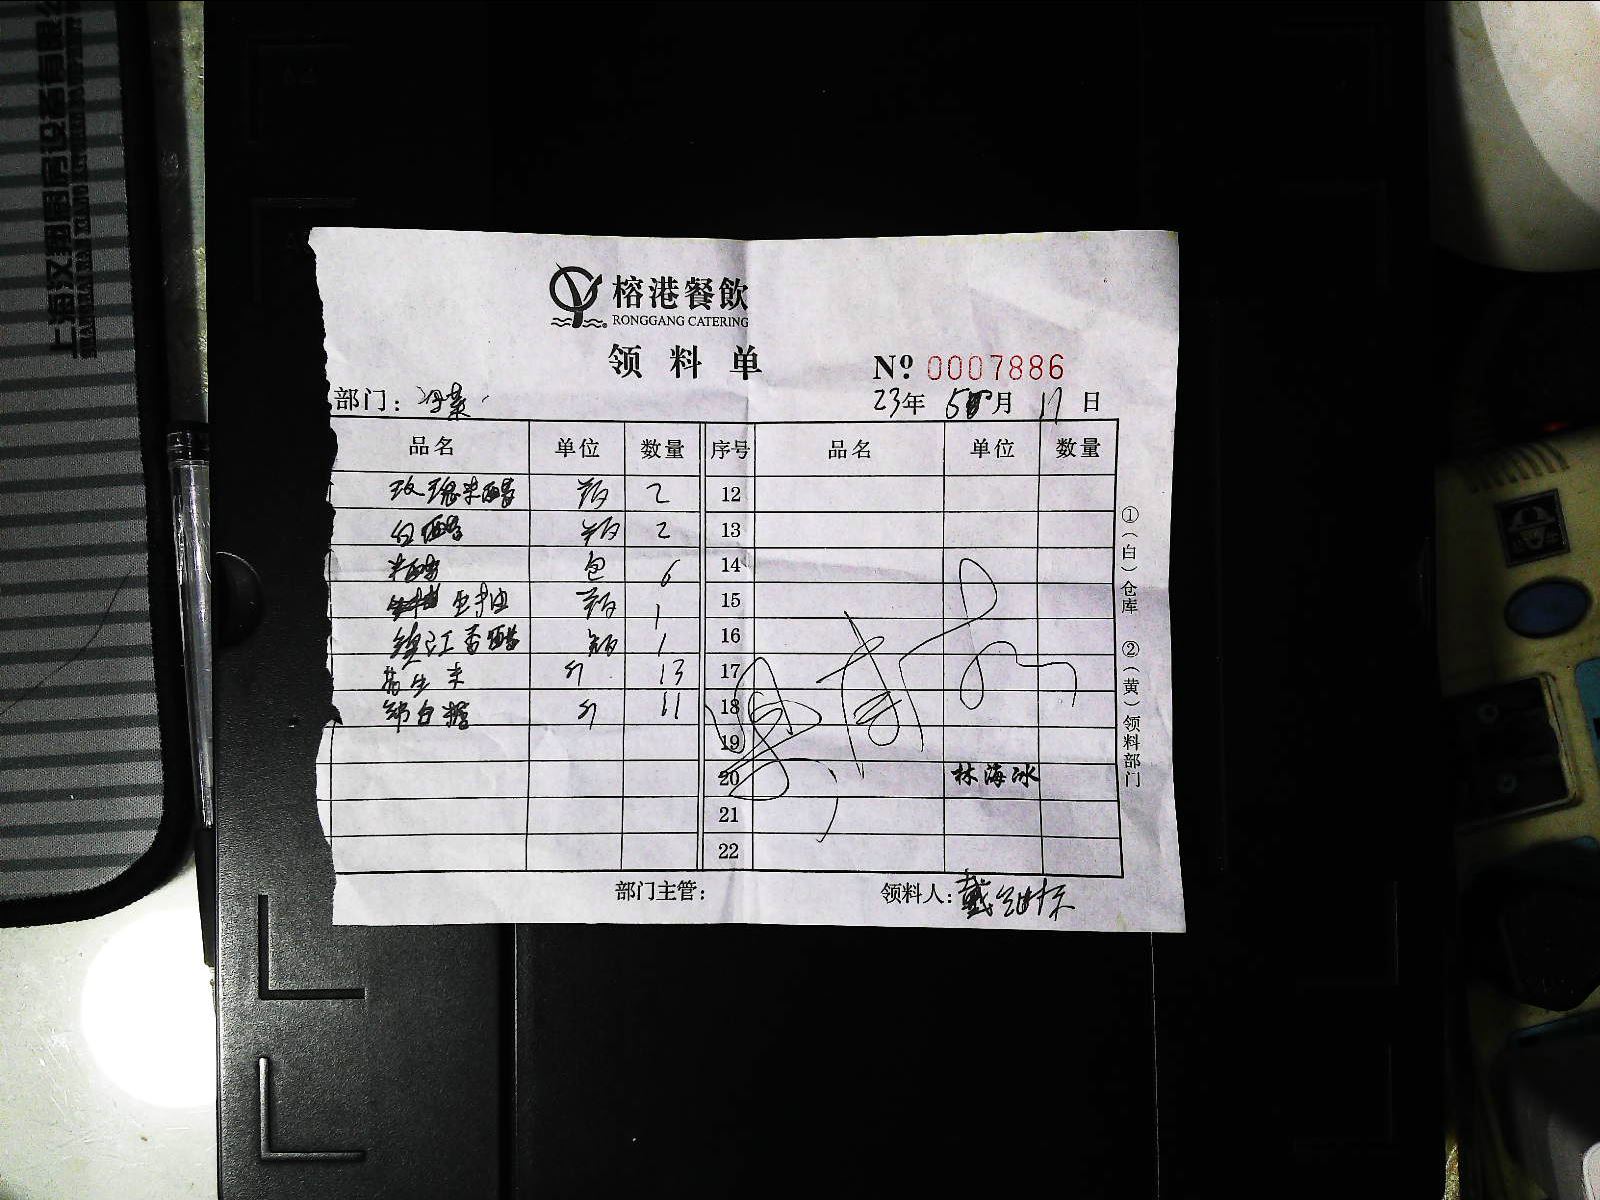 榕港餐飲
RONGGANG CATERING
领料单
№ 0007886
部门：冷菜
23年 5月 17日
品名 单位 数量 序号 品名 单位 数量
玫瑰米醋 瓶 2 12
白醋 瓶 2 13
米醋 包 6 14
瓶 1 15
镇江香醋 瓶 1 16
花生米 斤 13 17
绵白糖 斤 11 18
19
20 林海冰
21
22
部门主管： 领料人：戴
①（白）仓库 ②（黄）领料部门